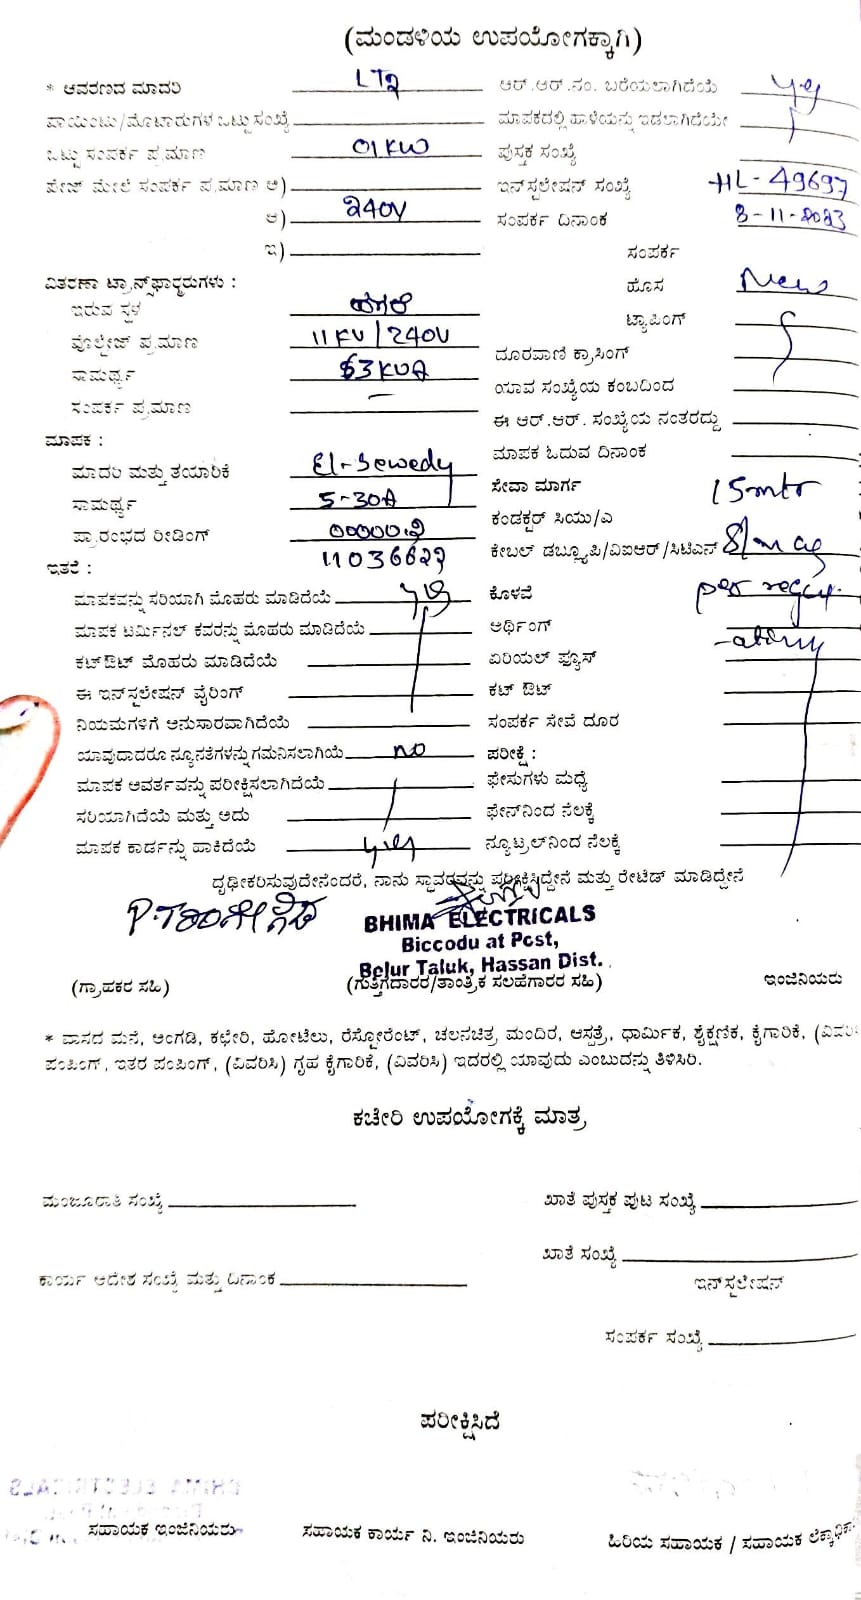 (ಮಂಡಳಿಯ ಉಪಯೋಗಕ್ಕಾಗಿ)
* ಆವರಣದ ಮಾದರಿ LT2 ಆರ್.ಆರ್.ನಂ. ಬರೆಯಲಾಗಿದೆಯೆ yes
ಪಾಯಿಂಟು/ಮೊಟಾರುಗಳ ಒಟ್ಟು ಸಂಖ್ಯೆ ಮಾಪಕದಲ್ಲಿ ಹಾಳೆಯನ್ನು ಇಡಲಾಗಿದೆಯೇ
ಒಟ್ಟು ಸಂಪರ್ಕ ಪ್ರಮಾಣ 01KW ಪುಸ್ತಕ ಸಂಖ್ಯೆ
ಪೇಜ್ ಮೇಲೆ ಸಂಪರ್ಕ ಪ್ರಮಾಣ ಅ) ಇನ್‌ಸ್ಟಲೇಷನ್ ಸಂಖ್ಯೆ HL-49697
ಆ) 240V ಸಂಪರ್ಕ ದಿನಾಂಕ 8-11-2023
ಇ) ಸಂಪರ್ಕ
ವಿತರಣಾ ಟ್ರಾನ್ಸ್‌ಫಾರ್ಮರುಗಳು : ಹೊಸ New
ಇರುವ ಸ್ಥಳ ಟ್ಯಾಪಿಂಗ್
ವೊಲ್ಟೇಜ್ ಪ್ರಮಾಣ 11KV/240V ದೂರವಾಣಿ ಕ್ರಾಸಿಂಗ್
ಸಾಮರ್ಥ್ಯ 63KVA ಯಾವ ಸಂಖ್ಯೆಯ ಕಂಬದಿಂದ
ಸಂಪರ್ಕ ಪ್ರಮಾಣ — ಈ ಆರ್.ಆರ್. ಸಂಖ್ಯೆಯ ನಂತರದ್ದು
ಮಾಪಕ : ಮಾಪಕ ಓದುವ ದಿನಾಂಕ
ಮಾದರಿ ಮತ್ತು ತಯಾರಿಕೆ El-Sewedy ಸೇವಾ ಮಾರ್ಗ 15mtr
ಸಾಮರ್ಥ್ಯ 5-30A ಕಂಡಕ್ಟರ್ ಸಿಯು/ಎ
ಪ್ರಾರಂಭದ ರೀಡಿಂಗ್ 00000.2 ಕೇಬಲ್ ಡಬ್ಲ್ಯೂಪಿ/ವಿಐಆರ್/ಸಿಟಿಎಸ್
ಇತರೆ : 11036627
ಮಾಪಕವನ್ನು ಸರಿಯಾಗಿ ಮೊಹರು ಮಾಡಿದೆಯೆ yes ಕೊಳವೆ per
ಮಾಪಕ ಟರ್ಮಿನಲ್ ಕವರನ್ನು ಮೊಹರು ಮಾಡಿದೆಯೆ ಅರ್ಥಿಂಗ್
ಕಟ್‌ಔಟ್ ಮೊಹರು ಮಾಡಿದೆಯೆ ಏರಿಯಲ್ ಫ್ಯೂಸ್
ಈ ಇನ್‌ಸ್ಟಲೇಷನ್ ವೈರಿಂಗ್ ಕಟ್ ಔಟ್
ನಿಯಮಗಳಿಗೆ ಅನುಸಾರವಾಗಿದೆಯೆ ಸಂಪರ್ಕ ಸೇವೆ ದೂರ
ಯಾವುದಾದರೂ ನ್ಯೂನತೆಗಳನ್ನು ಗಮನಿಸಲಾಗಿಯೆ no ಪರೀಕ್ಷೆ :
ಮಾಪಕ ಆವರ್ತವನ್ನು ಪರೀಕ್ಷಿಸಲಾಗಿದೆಯೆ ಫೇಸುಗಳು ಮಧ್ಯೆ
ಸರಿಯಾಗಿದೆಯೆ ಮತ್ತು ಅದು ಫೇಸ್‌ನಿಂದ ನೆಲಕ್ಕೆ
ಮಾಪಕ ಕಾರ್ಡನ್ನು ಹಾಕಿದೆಯೆ yes ನ್ಯೂಟ್ರಲ್‌ನಿಂದ ನೆಲಕ್ಕೆ
ದೃಢೀಕರಿಸುವುದೇನೆಂದರೆ, ನಾನು ಸ್ಥಾವರವನ್ನು ಪರೀಕ್ಷಿಸಿದ್ದೇನೆ ಮತ್ತು ರೇಟೆಡ್ ಮಾಡಿದ್ದೇನೆ
BHIMA ELECTRICALS
Biccodu at Post,
Belur Taluk, Hassan Dist.
(ಗ್ರಾಹಕರ ಸಹಿ) (ಗುತ್ತಿಗೆದಾರರ/ತಾಂತ್ರಿಕ ಸಲಹೆಗಾರರ ಸಹಿ) ಇಂಜಿನಿಯರು
* ವಾಸದ ಮನೆ, ಅಂಗಡಿ, ಕಛೇರಿ, ಹೋಟೆಲು, ರೆಸ್ಟೋರೆಂಟ್, ಚಲನಚಿತ್ರ ಮಂದಿರ, ಆಸ್ಪತ್ರೆ, ಧಾರ್ಮಿಕ, ಶೈಕ್ಷಣಿಕ, ಕೈಗಾರಿಕೆ, (ವಿವರಿಸಿ
ಪಂಪಿಂಗ್, ಇತರ ಪಂಪಿಂಗ್, (ವಿವರಿಸಿ) ಗೃಹ ಕೈಗಾರಿಕೆ, (ವಿವರಿಸಿ) ಇದರಲ್ಲಿ ಯಾವುದು ಎಂಬುದನ್ನು ತಿಳಿಸಿರಿ.
ಕಚೇರಿ ಉಪಯೋಗಕ್ಕೆ ಮಾತ್ರ
ಮಂಜೂರಾತಿ ಸಂಖ್ಯೆ ಖಾತೆ ಪುಸ್ತಕ ಪುಟ ಸಂಖ್ಯೆ
ಖಾತೆ ಸಂಖ್ಯೆ
ಕಾರ್ಯ ಆದೇಶ ಸಂಖ್ಯೆ ಮತ್ತು ದಿನಾಂಕ ಇನ್‌ಸ್ಟಲೇಷನ್
ಸಂಪರ್ಕ ಸಂಖ್ಯೆ
ಪರೀಕ್ಷಿಸಿದೆ
ಸಹಾಯಕ ಇಂಜಿನಿಯರು ಸಹಾಯಕ ಕಾರ್ಯ ನಿ. ಇಂಜಿನಿಯರು ಹಿರಿಯ ಸಹಾಯಕ / ಸಹಾಯಕ ಲೆಕ್ಕಾಧಿಕ